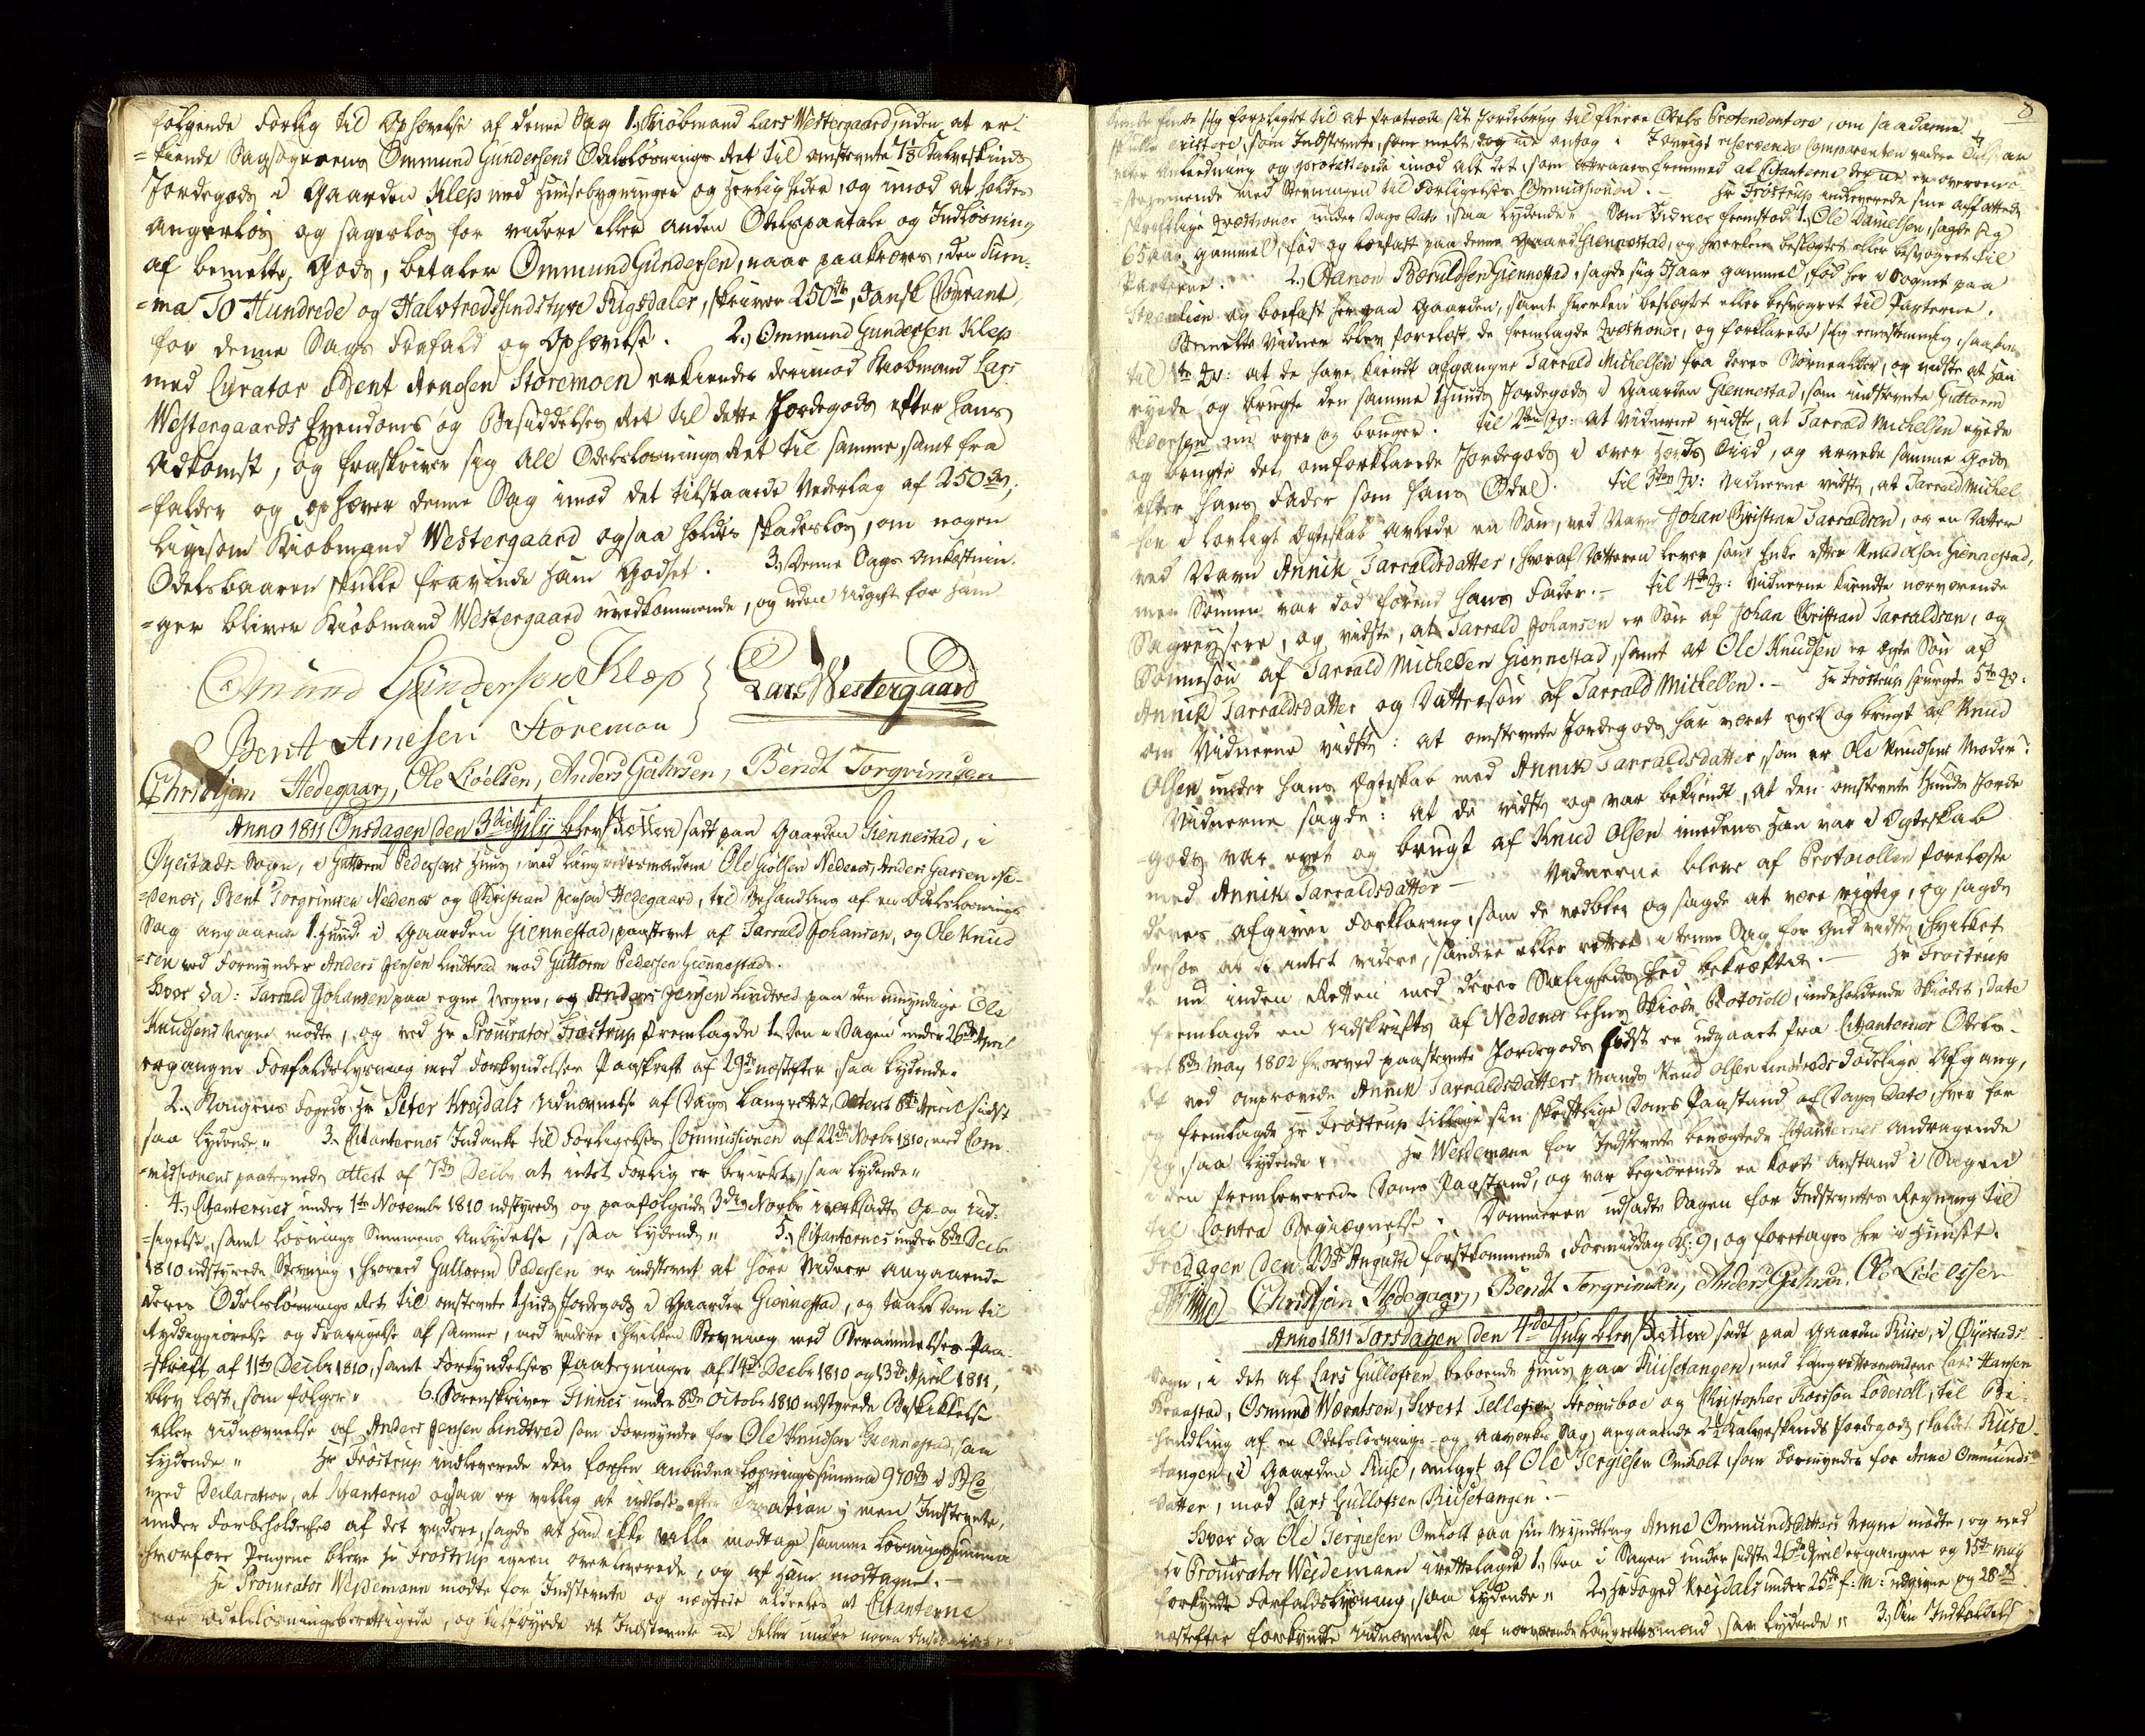 følgende Forlig til Ophævelse af denne Sag 1, Kiøbmand Lars Westergaard, uden at er-
=kiende Sagsøgerens Ommund Gundersens Odelsløsnings Ret til omstevnte 7/8 Kalveskinds
Jordegods i Gaarden Klep med Huusebygninger og Herligheder, og imod at holdes
angerløs og sagesløs for videre eller anden Odelspaatale og Indløsning
af bemelte Gods, betaler Ommund Gundersen, naar paakræves, den Sum-
=ma To Hundrede og Halvtredsindstyve Rigsdaler, skriver 250 rd, Dansk Courant
for denne Sags Frafald og Ophævelse. 2, Ommund Gundersen Klep
med Curator Bent Arnesen Storemoen erkiender derimod Kiøbmand Lars
Westergaards Eyendoms og Besiddelses Ret til dette Jordegods efter hans
Adkomst, og fraskriver sig all Odelsløsnings Ret til samme, samt fra
=falder og ophæver denne Sag imod det tilstaaede Vederlag af 250 rd;
ligesom Kiøbmand Westergaard ogsaa holdes skadesløs, om nogen
Odelsbaaren skulle fravinde ham Godset. 3, Denne Sags Omkostnin-
=ger bliver Kiøbmand Westergaard uvedkommende, og uden Udgift for ham
Omund Gunderson Klep
Lars Westergaard
Bent Arnesen Storemoen
Christjern Hedegaar, Ole Lioelsen, Anders Gahrsen, Bendt Torgrimsen
Anno 1811 Onsdagen den 3die July blev Retten sadt paa Gaarden Giennestad, i
Øyestads Sogn, i Guttorm Pedersens Huus, med Laugrettesmændene Ole Giolsen Nedenes, Anders Garsen Ne-
=denes, Bent Torgrimsen Nedenes og Christian Jenson Hedegaard, til Behandling af en Odelsløsnings
Sag angaaende 1 Huud i Gaarden Giennestad, paastevnt af Tarrald Johansen, og Ole Knud
=sen ved Formynder Anders Jensen Lindtved mod Guttorm Pedersen Giennestad.
Hvor da: Tarrald Johansen paa egne Vegne, og Anders Jensen Lindtved paa den umyndige Ole
Knudsens Vegne mødte, og ved Hr Procurator Frostrup fremlagde 1, Den i Sagen under 26de April
ergangne Forfaldslysning med Forkyndelses Paaskrift af 29de næstefter, saa lydende„
2, Kongens Fogeds Hr Peter Krejdals Udnævnelse af Dags Laugrett, dateret 6te April sidst
saa lydende„ 3, Citanternes Indanke til Forligelses Commissionen af 22de Novbr 1810, med Com-
=missionens paategnede Attest af 7de Decbr at intet Forlig er bevirket, saa lydende„
4, Citanternes under 1te Novembr 1810 udstyrede og paafølgende 3die Novbr iværksadte Op- og Ud-
=sigelse, samt Løsnings Summens Anbydelse, saa lydende„ 5, Citanternes under 8de Decbr
1810 udstyrede Stevning, hvorved Guttorm Pedersen er indstevnt at høre Vidner angaaende
deres Odelsløsnings Ret til omstevnte 1 Huuds Jordegods i Gaarden Giennestad, og taale Dom til
Ryddeggiørelse og Fravigelse af samme, med videre, hvilken Stevning med Berammelses Paa-
=skrift af 11te Decbr 1810, samt Forkyndelses Paategninger af 14de Decbr 1810 og 13de April 1811,
blev læst, som følger„ 6. Sorenskriver Finnes under 8de Octobr 1810 udstyrede Beskikkelse
eller Udnævnelse af Anders Jensen Lindtved som Formynder for Ole Knudsen Giennestad, saa
lydende„ Hr Frostrup indleverede den forhen anbudne Løsningssumma 970 rd i B. Co.
med Declaration, at Citanterne ogsaa er villig at indløse efter Taxation; men Indstevnte,
under Forbeholdenhed af det videre, sagde at han ikke ville modtage samme Løsningssumma
hvorfore Pengene bleve Hr Frostrup igien overleverede, og af ham modtagne.
Hr Procurator Weidemann mødte for Indstevnte og nægtede aldeeles at Citanterne
ere Odelsløsningsberettigede, og tilføyede at Indstevnte ey heller under nogen
8
kunde finde sig forpligtet til at fratræde sit Jordebrug til fleere Odels Prætendentere, om saadanne
skulle existere, som Indstevnte, som melt, dog ey antog. I øvrigt reserverede Comparenten videre
efter Anledning og protesterede imod alt det, som attraaes fremmed af Citanterne der ey er overeens-
=stemmende med Stevningen til Forligelses Commissionen. — Hr Frostrup indleverede sine affattede
skriftlige Qvæstioner under Dags Dato, saa lydende„ Som Vidner fremstod 1, Ole Danielsen, sagde sig
65 aar gammel, fød og boefast paa denne Gaard Giennestad, og hverken beslægtet eller besvogret til
Parterne. 2, Aanon Bæruldsen Giennestad, sagde sig 57 aar gammel, fød her i Sognet paa
og boefast her paa Gaarden, samt hverken beslægtet eller besvogret til Parterne.
Bemelte Vidner blev forelæst de fremlagde Qvæstioner, og forklarede sig eenstemmig, saasom
til 1te Qv: at de have kiendt afgangne Tarrald Michelsen fra deres Barnealder, og vidste at han
eyede og brugte den samme 1 Huuds Jordegods i Gaarden Giennestad, som indstevnte Guttorm
Pedersen nu eyer og bruger. Til 2den Qv: at Vidnerne vidste, at Tarrald Michelsen eyede
og brugte det omforklarede Jordegods i over Hævds Tiid, og arvede samme Gods
efter hans Fader som hans Odel. Til 3die Qv: Vidnerne vidste, at Tarrald Michel
sen i lovligt Ægteskab avlede en Søn, ved Navn Johan Christian Tarraldsen, og en Datter
ved Navn Annik Tarraldsdatter, hvoraf Datteren lever som Enke efter Knud Olsen Giennestad,
men Sønnen var død førend hans Fader. — Til 4de Qv: Vidnerne kiendte nærværende
Sagsøgere, og vidste, at Tarrald Johansen er Søn af Johan Christian Tarraldsen, og
Sønnesøn af Tarrald Michelsen Giennestad, samt at Ole Knudsen er ægte Søn af
Annik Tarraldsdatter og Dattersøn af Tarrald Michelsen. — Hr Frostrup spurgte 5te Qv:
om Vidnerne vidste: at omstevnte Jordegods har været eyet og brugt af Knud
Olsen under hans Ægteskab med Annik Tarraldsdatter, som er Ole Knudsens Moder?
Vidnerne sagde: at de vidste og var bekiendt, at den omstevnte 1 Huuds Jorde
gods var eyet og brugt af Knud Olsen imedens han var i Ægteskab
med Annik Tarraldsdatter — Vidnerne bleve af Protocollen forelæste
deres afgivne Forklaring, som de vedblev og sagde at være rigtig, og sagde
derhos at ey andet videre, sandere eller rettere i denne Sag for Gud vidste, hvilket
de nu inden Retten med deres Saligheds Eed bekræftede. — Hr Frostrup
fremlagde en Udskrift af Nedenes Lehns Skiøde Protocoll, indeholdende Skiødet, date
ret 8de May 1802 hvorved paastevnte Jordegods sidst er udgaaet fra Citanternes Odels-
ved omprovede Annik Tarraldsdatters Mands Knud Olsen Lindtveds dødelige Afgang,
og fremlagde Hr Frostrup tillige sin skriftlige Doms Paastand af Dags Dato, hver for
sig, saa lydende„ Hr Weidemann for Indstevnte benægtede Citanternes Andragende
i den fremleverede Doms Paastand, og var begiærende en kort Anstand i Sagen
til Contra Begiegnelse. Dommeren udsadte Sagen for Indstevntes Regning til
Fredagen den 23de Augusti førstkommende, Formiddag Kl: 9, og foretages her i Huuset.
Christjern Hedegaar, Bendt Torgrimsen, Anders Gahrsen, Ole Lidelssen
Anno 1811 Torsdagen den 4de July blev Retten sadt paa Gaarden Ruse, i Øyestads
Sogn, i det af Lars Gullofsen beboende Huus paa Rusetangen, med Laugrettesmændene Lars Hansen
Braastad, Osmund Wærntsen, Sivert Tellefsen Strømsboe og Christopher Torsson Loderøll, til Be-
=handling af en Odelsløsnings- og Aaværks Sag, angaaende 2½ Kalveskinds Jordegods, kaldet Ruse-
tangen, i Gaarden Ruse, anlagt af Ole Tergiesen Omholt, som Formynder for Anne Ommunds-
Datter, mod Lars Gullofsen Rusetangen. —
Hvor da Ole Tergiesen Omholt paa sin Myndtling Anne Ommundsdatters Vegne mødte, og ved
Hr Procurator Weidemann irettelagde 1, Den i Sagen under sidste 26de April ergangne og 15de May
forkyndte Forfaldslysning, saa lydende„ 2, Hr Foged Krejdals under 25de f: M: udgivne og 28de
næstefter forkyndte Udnævnelse af nærværende Laugrettesmænd, saa lydende„ 3, Sin Indkaldelse